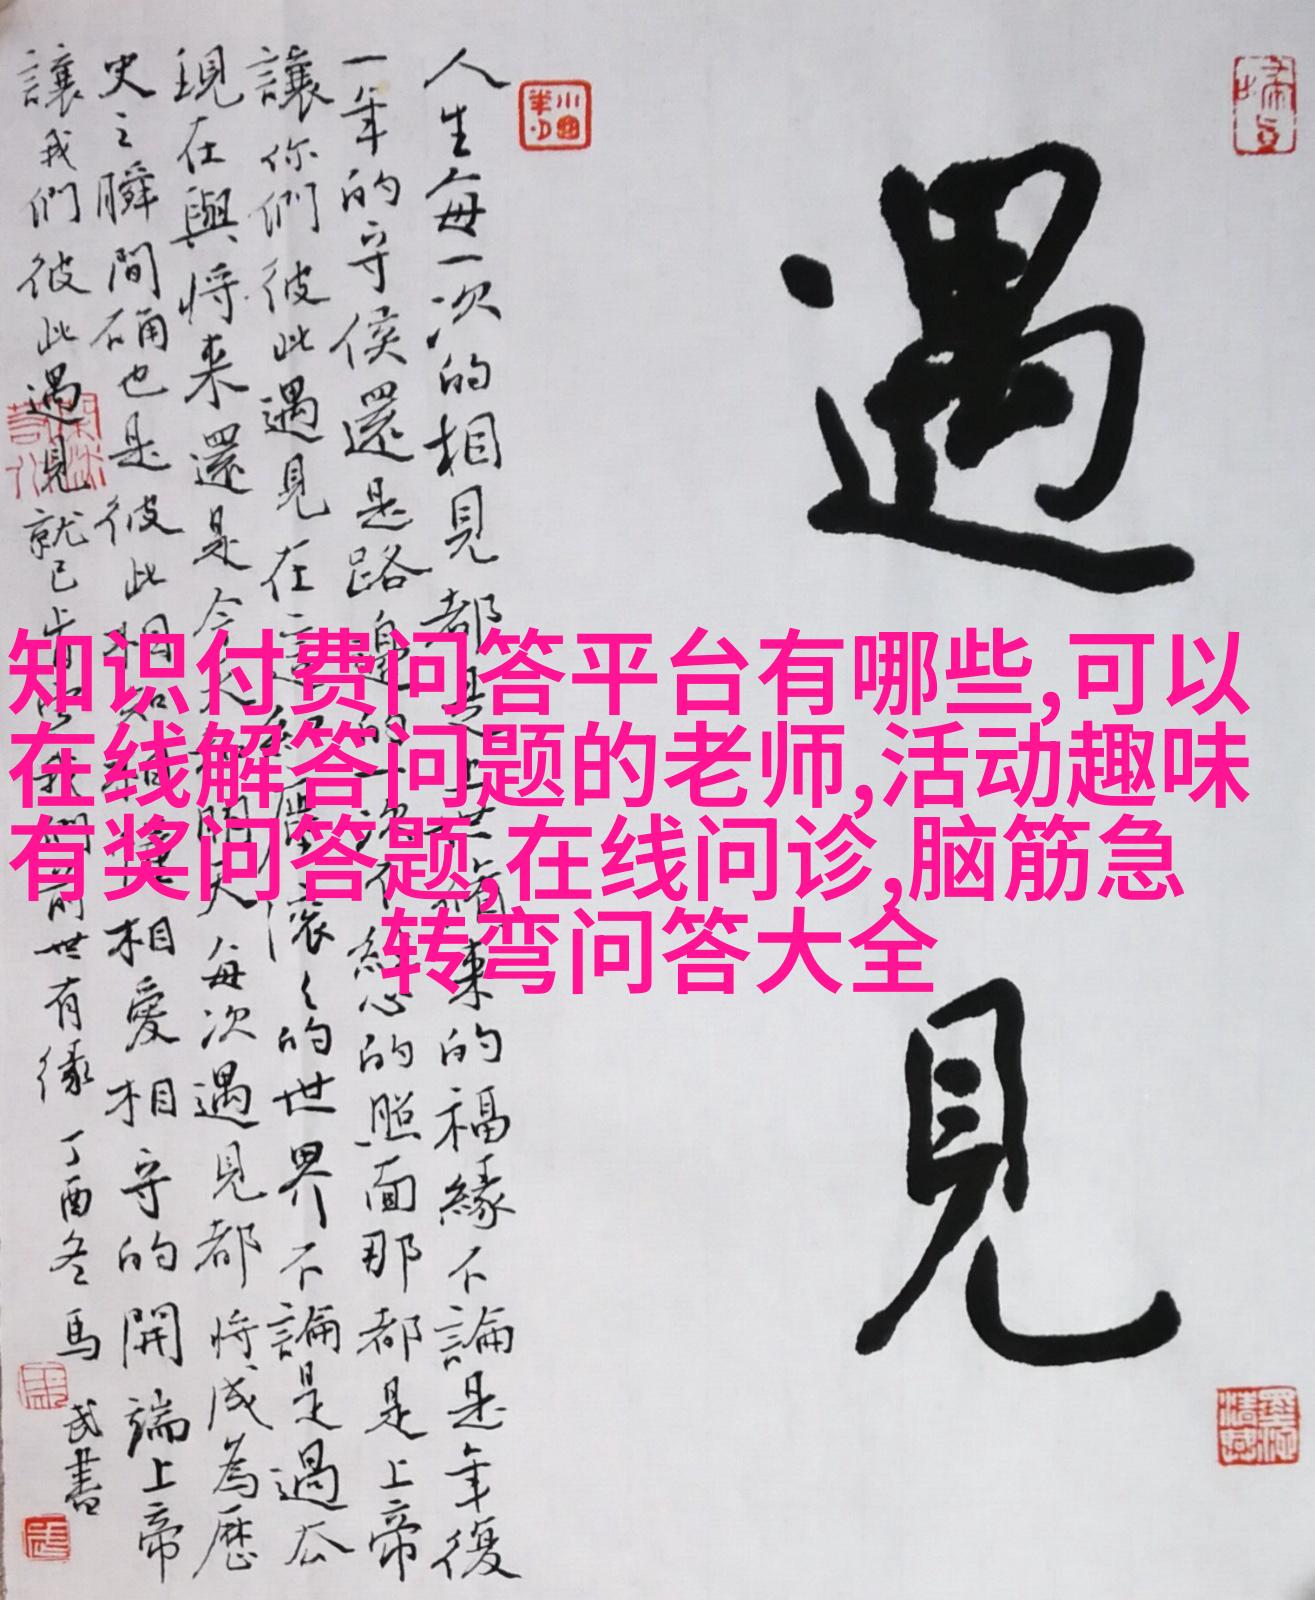 遇見
人生每一次的相見都是上世來的福緣不論是年復
一年的守侯還是路邊的一次不經心的照面那都是上帝
讓你們彼此遇見在這的世界不論是過去
現在與將來還是今天每次遇見都將成為歷
史之瞬間确也是彼此相知相愛相守的開端上帝
讓我們彼此遇見就已我們前世有緣 丁酉冬馬武書
知识付费问答平台有哪些,可以
在线解答问题的老师,活动趣味
有奖问答题,在线问诊,脑筋急
转弯问答大全